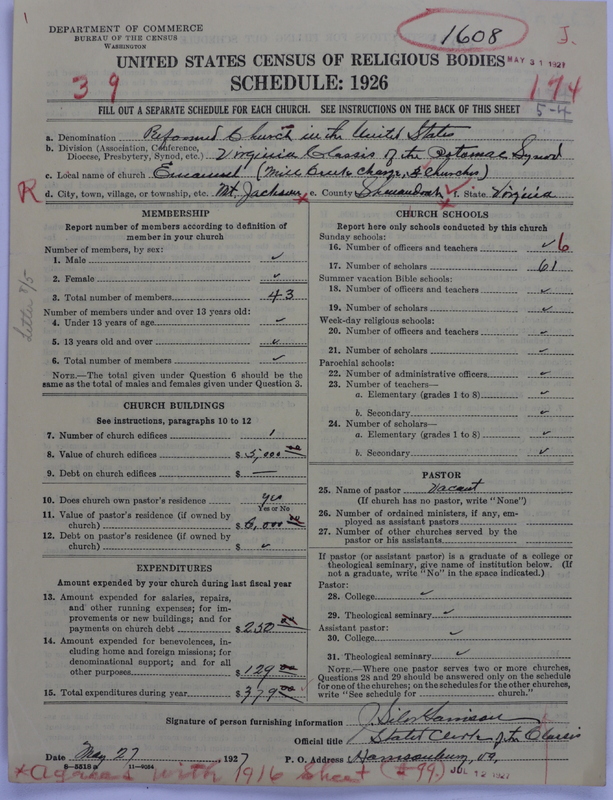 1
DEPARTMENT OF COMMERCE
BUREAU OF THE CENSUS
WASHINGTON
1608
J.
MAY 31 1927
UNITED STATES CENSUS OF RELIGIOUS BODIES
39
SCHEDULE: 1926
174
FILL OUT A SEPARATE SCHEDULE FOR EACH CHURCH. SEE INSTRUCTIONS ON THE BACK OF THIS SHEET
5-4
a. Denomination Reformed Church in the United States
b. Division (Association, Conference, Diocese, Presbytery, Synod, etc.) Virginia Classis of the Potomac Synod
c. Local name of church Emanuel (Mill Creek Charge, 4 Churches)
R
d. City, town, village, or township, etc. Mt. Jackson x e. County Shenandoah f. State Virginia
x
MEMBERSHIP
Report number of members according to definition of member in your church
Number of members, by sex:
1. Male ✓
2. Female ✓
3. Total number of members 43
Number of members under and over 13 years old:
4. Under 13 years of age ✓
5. 13 years old and over ✓
6. Total number of members ✓
NOTE.—The total given under Question 6 should be the same as the total of males and females given under Question 3.
Letter 8/5
CHURCH BUILDINGS
See instructions, paragraphs 10 to 12
7. Number of church edifices 1
8. Value of church edifices $ 5,000 00
9. Debt on church edifices $ —
10. Does church own pastor's residence yes
Yes or No
11. Value of pastor's residence (if owned by church) $ 6,000 00
12. Debt on pastor's residence (if owned by church) $ ✓
EXPENDITURES
Amount expended by your church during last fiscal year
13. Amount expended for salaries, repairs, and other running expenses; for improvements or new buildings; and for payments on church debt $ 250 00
14. Amount expended for benevolences, including home and foreign missions; for denominational support; and for all other purposes $ 129 00
15. Total expenditures during year $ 379 00
CHURCH SCHOOLS
Report here only schools conducted by this church
Sunday schools:
16. Number of officers and teachers ✓ 6
17. Number of scholars 61
Summer vacation Bible schools:
18. Number of officers and teachers ✓
19. Number of scholars ✓
Week-day religious schools:
20. Number of officers and teachers ✓
21. Number of scholars ✓
Parochial schools:
22. Number of administrative officers ✓
23. Number of teachers—
a. Elementary (grades 1 to 8) ✓
b. Secondary ✓
24. Number of scholars—
a. Elementary (grades 1 to 8) ✓
b. Secondary ✓
PASTOR
25. Name of pastor Vacant
(If church has no pastor, write "None")
26. Number of ordained ministers, if any, employed as assistant pastors
27. Number of other churches served by the pastor or his assistants
If pastor (or assistant pastor) is a graduate of a college or theological seminary, give name of institution below. (If not a graduate, write "No" in the space indicated.)
Pastor:
28. College ✓
29. Theological seminary ✓
Assistant pastor:
30. College ✓
31. Theological seminary ✓
NOTE.—Where one pastor serves two or more churches, Questions 28 and 29 should be answered only on the schedule for one of the churches; on the schedules for the other churches, write "See schedule for church."
Signature of person furnishing information J. Silor Garrison
Official title Stated Clerk of the Classis
Date May 27 1927 P. O. Address Harrisonburg, Va.
11-9054
*Agrees with 1916 Sheet (#99)
JUL 12 1927